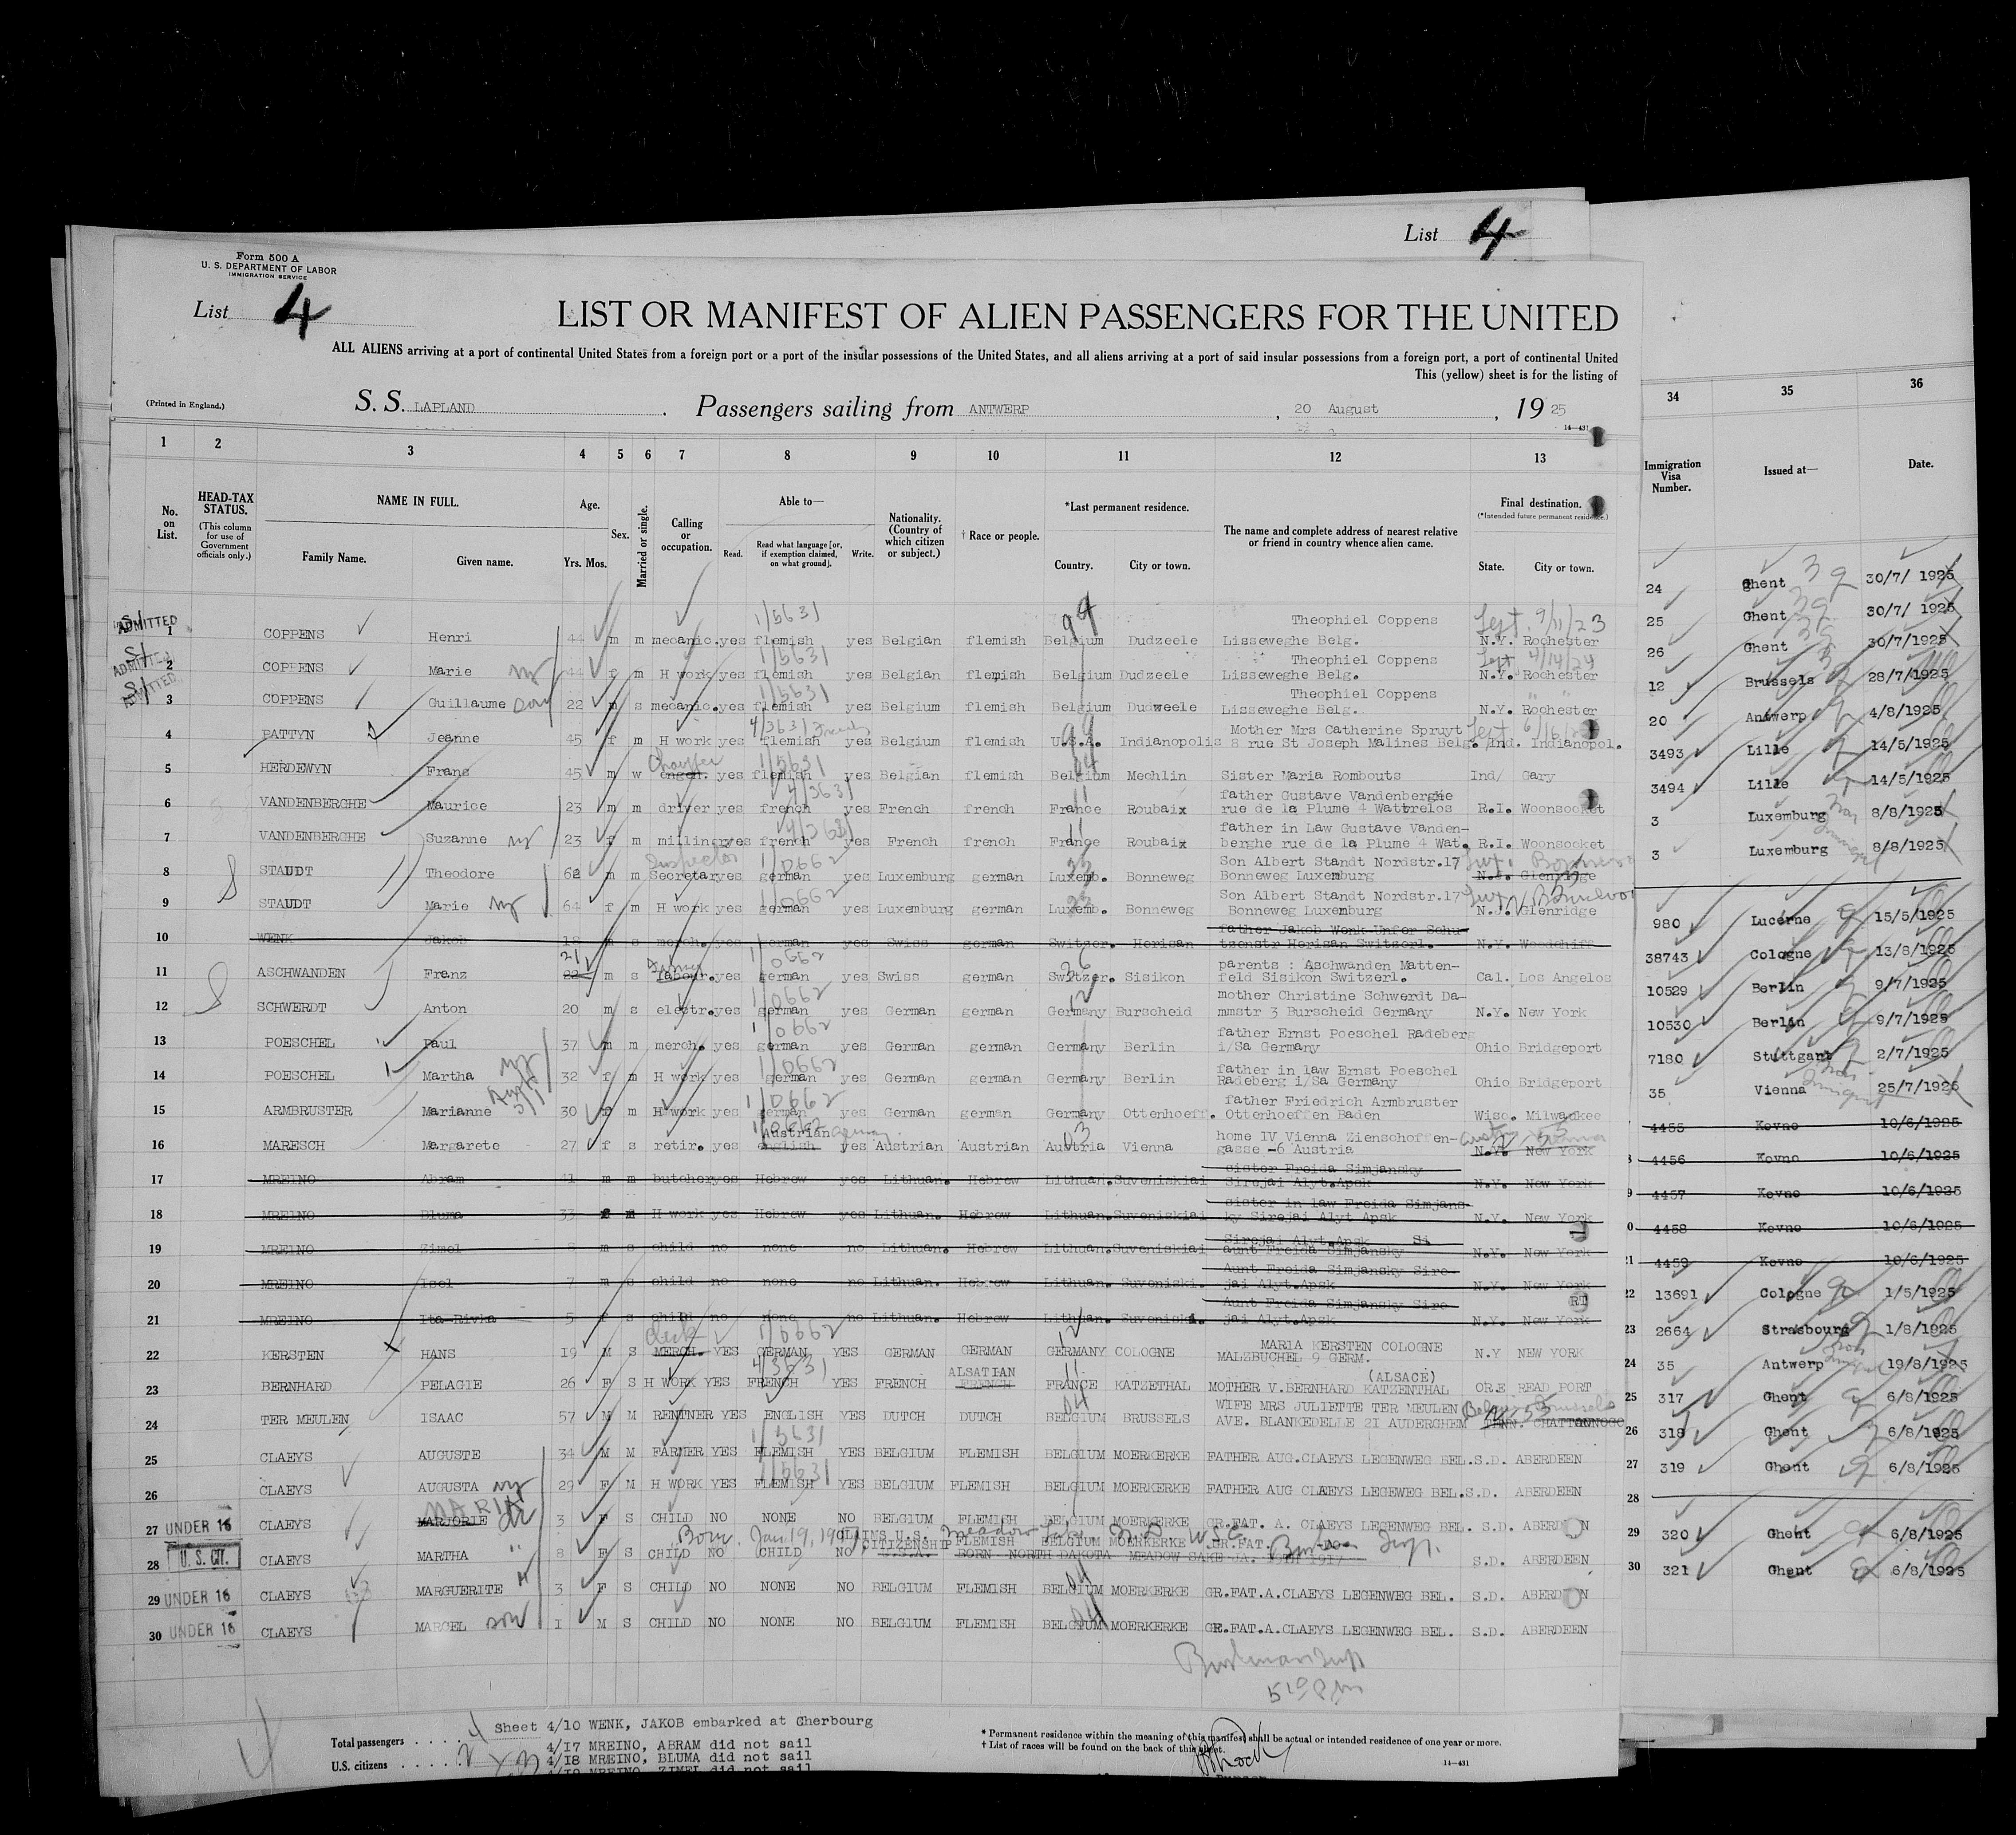 List 4
Form 500 A
U. S. DEPARTMENT OF LABOR
IMMIGRATION SERVICE
List 4
LIST OR MANIFEST OF ALIEN PASSENGERS FOR THE UNITED
ALL ALIENS arriving at a port of continental United States from a foreign port or a port of the insular possessions of the United States, and all aliens arriving at a port of said insular possessions from a foreign port, a port of continental United
This (yellow) sheet is for the listing of
(Printed in England.) S. S. LAPLAND. Passengers sailing from ANTWERP, 20 August, 19 25
14—431
1 2 3 4 5 6 7 8 9 10 11 12 13 34 35 36
No. on List.
HEAD-TAX STATUS.
(This column for use of Government officials only.)
NAME IN FULL.
Family Name. Given name.
Age.
Yrs. Mos.
Sex.
Married or single.
Calling or occupation.
Able to—
Read. Read what language [or, if exemption claimed, on what ground]. Write.
Nationality. (Country of which citizen or subject.)
† Race or people.
*Last permanent residence.
Country. City or town.
The name and complete address of nearest relative or friend in country whence alien came.
Final destination.
(*Intended future permanent residence.)
State. City or town.
Immigration Visa Number.
Issued at—
Date.
ADMITTED 1 COPPENS Henri 44 m m mecanic. yes flemish 1/5631 yes Belgian flemish Belgium Dudzeele Theophiel Coppens Lisseweghe Belg. N.Y. Rochester 9/11/23
ADMITTED 2 COPPENS Marie 44 f m H work yes flemish 1/5631 yes Belgian flemish Belgium Dudzeele Theophiel Coppens Lisseweghe Belg. N.Y. Rochester 4/14/24
ADMITTED 3 COPPENS Guillaume son 22 m s mecanic. yes flemish 1/5631 yes Belgium flemish Belgium Dudweele Theophiel Coppens Lisseweghe Belg. N.Y. Rochester
4 PATTYN Jeanne 45 f m H work yes flemish 4/3631 yes Belgium flemish U.S.A. Indianopolis Mother Mrs Catherine Spruyt 8 rue St Joseph Malines Belg. Ind. Indianopol.
5 HERDEWYN Frans 45 m w yes flemish 1/5631 yes Belgian flemish Belgium Mechlin Sister Maria Rombouts Ind/ Gary
6 VANDENBERGHE Maurice 23 m m driver yes french 4/3631 yes French french France Roubaix father Gustave Vandenberghe rue de la Plume 4 Wattrelos R.I. Woonsocket
7 VANDENBERGHE Suzanne 23 f m milling yes french yes French french France Roubaix father in Law Gustave Vanden-berghe rue de la Plume 4 Wat. R.I. Woonsocket
8 STAUDT Theodore 62 m m Secretar yes german 1/0662 yes Luxemburg german Luxemb. Bonneweg Son Albert Standt Nordstr.17 Bonneweg Luxemburg N.J. Glenridge
9 STAUDT Marie 64 f m H work yes german 1/0662 yes Luxemburg german Luxemb. Bonneweg Son Albert Standt Nordstr.17 Bonneweg Luxemburg N.J. Glenridge
10 WENK Jakob 18 m s merch. yes german yes Swiss german Switzer. Herisan father Jakob Wenk Unfer Schu-tzenstr Herisan Switzerl. N.Y. Woodchiff
11 ASCHWANDEN Franz 21 22 m s labour. yes german 1/0662 yes Swiss german Switzer. Sisikon parents : Aschwanden Matten-feld Sisikon Switzerl. Cal. Los Angelos
12 SCHWERDT Anton 20 m s electr. yes german 1/0662 yes German german Germany Burscheid mother Christine Schwerdt Da-mmstr 3 Burscheid Germany N.Y. New York
13 POESCHEL Paul 37 m m merch. yes german 1/0662 yes German german Germany Berlin father Ernst Poeschel Radeberg i/Sa Germany Ohio Bridgeport
14 POESCHEL Martha 32 f m H work yes german 1/0662 yes German german Germany Berlin father in law Ernst Poeschel Radeberg i/Sa Germany Ohio Bridgeport
15 ARMBRUSTER Marianne 30 f m H work yes german 1/0662 yes German german Germany Ottenhoeff. father Friedrich Armbruster Ottenhoeffen Baden Wisc. Milwaukee
16 MARESCH Margarete 27 f s retir. yes english Austrian yes Austrian Austrian Austria Vienna home IV Vienna Zienschoffen-gasse -6 Austria N.Y. New York
17 MREINO Abram 41 m m butcher yes Hebrew yes Lithuan. Hebrew Lithuan. Suveniskiai sister Freida Simjansky Sirejai Alyt.Apsk N.Y. New York
18 MREINO Bluma 33 f m H work yes Hebrew yes Lithuan. Hebrew Lithuan. Suveniskiai sister in law Freida Simjans-ky Sirejai Alyt Apsk N.Y. New York
19 MREINO Zimel 8 m s child no none no Lithuan. Hebrew Lithuan. Suveniskiai Sirejai Alyt.Apsk Si aunt Freida Simjansky N.Y. New York
20 MREINO Isel 7 m s child no none no Lithuan. Hebrew Lithuan. Suveniski. Aunt Freida Simjansky Sire-jai Alyt.Apsk N.Y. New York
21 MREINO Ita-Rivka 5 f s child no none no Lithuan. Hebrew Lithuan. Suveniski. Aunt Freida Simjansky Sire-jai Alyt.Apsk N.Y. New York
22 KERSTEN HANS 19 M S MERCH. Clerk YES GERMAN 1/0662 YES GERMAN GERMAN GERMANY COLOGNE MARIA KERSTEN COLOGNE MALZBUCHEL 9 GERM. N.Y NEW YORK
23 BERNHARD PELAGIE 26 F S H WORK YES FRENCH 4/3631 YES FRENCH FRENCH ALSATIAN FRANCE KATZETHAL (ALSACE) MOTHER V.BERNHARD KATZENTHAL ORE READ PORT
24 TER MEULEN ISAAC 57 M M RENTNER YES ENGLISH YES DUTCH DUTCH BELGIUM BRUSSELS WIFE MRS JULIETTE TER MEULEN AVE. BLANKEDELLE 21 AUDERGHEM TENN. CHATTONNOGO
25 CLAEYS AUGUSTE 34 M M FARMER YES FLEMISH 1/5631 YES BELGIUM FLEMISH BELGIUM MOERKERKE FATHER AUG.CLAEYS LEGENWEG BEL. S.D. ABERDEEN
26 CLAEYS AUGUSTA 29 F M H WORK YES FLEMISH 1/5631 YES BELGIUM FLEMISH BELGIUM MOERKERKE FATHER AUG CLAEYS LEGEWEG BEL. S.D. ABERDEEN
27 UNDER 16 CLAEYS MARJORIE MARIA 3 F S CHILD NO NONE NO BELGIUM FLEMISH BELGIUM MOERKERKE GR.FAT. A. CLAEYS LEGENWEG BEL. S.D. ABERDEEN
28 U. S. CIT. CLAEYS MARTHA 8 F S CHILD NO CHILD NO CLAIMS U.S. CITIZENSHIP FLEMISH BELGIUM MOERKERKE GR.FAT. BORN NORTH DAKOTA MEADOW LAKE JA. 19TH 1917 S.D. ABERDEEN
29 UNDER 16 CLAEYS MARGUERITE 3 F S CHILD NO NONE NO BELGIUM FLEMISH BELGIUM MOERKERKE GR.FAT.A.CLAEYS LEGENWEG BEL. S.D. ABERDEEN
30 UNDER 16 CLAEYS MARCEL son 1 M S CHILD NO NONE NO BELGIUM FLEMISH BELGIUM MOERKERKE GR.FAT.A.CLAEYS LEGENWEG BEL. S.D. ABERDEEN
24 Ghent 30/7/ 1925
25 Ghent 30/7/ 1925
26 Ghent 30/7/1925
12 Brussels 28/7/1925
20 Antwerp 4/8/1925
3493 Lille 14/5/1925
3494 Lille 14/5/1925
3 Luxemburg 8/8/1925
3 Luxemburg 8/8/1925
980 Lucerne 15/5/1925
38743 Cologne 13/8/1925
10529 Berlin 9/7/1925
10530 Berlin 9/7/1925
7180 Stuttgart 2/7/1925
35 Vienna 25/7/1925
4455 Kovno 10/6/1925
4456 Kovno 10/6/1925
4457 Kovno 10/6/1925
4458 Kovno 10/6/1925
4459 Kovno 10/6/1925
22 13691 Cologne 1/5/1925
23 2664 Strasbourg 1/8/1925
24 35 Antwerp 19/8/1925
25 317 Ghent 6/8/1925
26 318 Ghent 6/8/1925
27 319 Ghent 6/8/1925
28
29 320 Ghent 6/8/1925
30 321 Ghent 6/8/1925
Total passengers
U.S. citizens
Sheet 4/10 WENK, JAKOB embarked at Cherbourg
4/17 MREINO, ABRAM did not sail
4/18 MREINO, BLUMA did not sail
4/19 MREINO, ZIMEL did not sail
* Permanent residence within the meaning of this manifest shall be actual or intended residence of one year or more.
† List of races will be found on the back of this sheet.
14—431